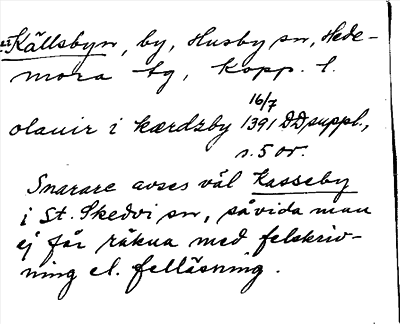 Källsbyn, by, Husby sn, Hede-
mora tg, Kopp. l.
16/7
olauir i kærdzby 1391 DDsuppl.,
n. 5 or.
Snarare avses väl Kasseby
i St. Skedvi sn, såvida man
ej får räkna med felskriv-
ning el. felläsning.